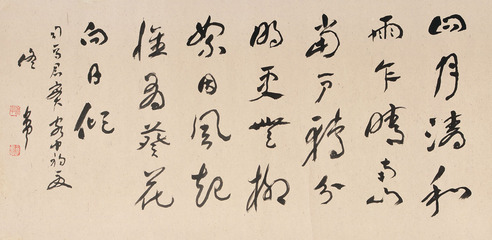 四月清和
雨乍晴南山
當戶轉分
明更無柳
絮因風起
惟有葵花
向日傾
司馬君實客中初夏
佟韋